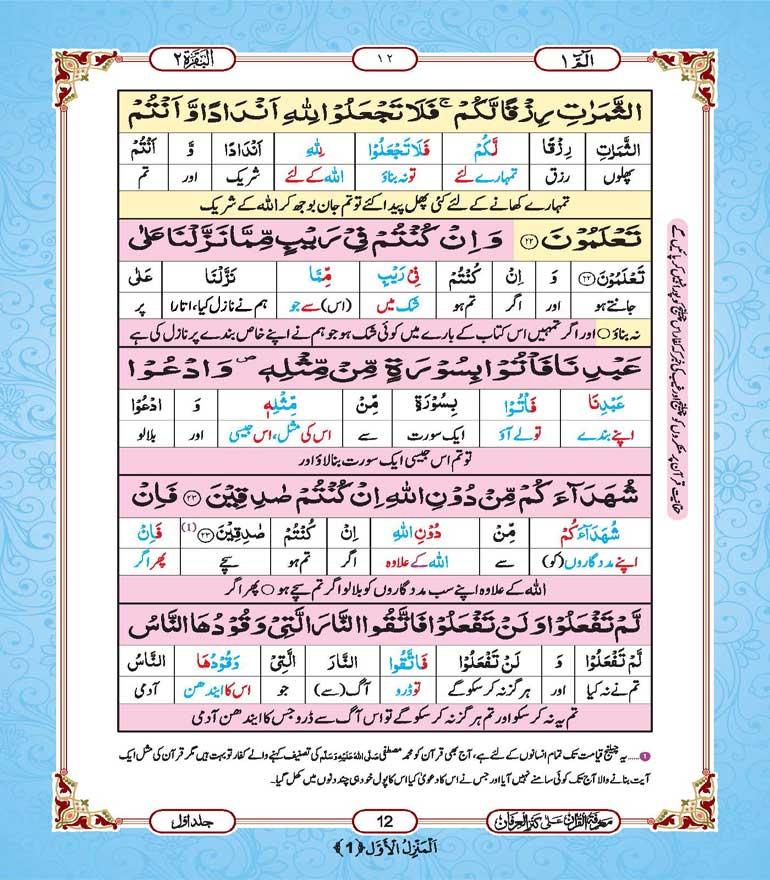 الٓمّٓ ١ ١٢ اَلْبَقَرَة ٢
الثَّمَرٰتِ رِزْقًا لَّكُمْ ۚ فَلَا تَجْعَلُوْا لِلّٰهِ اَنْدَادًا وَّ اَنْتُمْ
الثَّمَرٰتِ رِزْقًا لَّكُمْ فَلَا تَجْعَلُوْا لِلّٰهِ اَنْدَادًا وَّ اَنْتُمْ
پھلوں رزق تمہارے لئے تو نہ بناؤ اللہ کے لئے شریک اور تم
تمہارے کھانے کے لئے کئی پھل پیدا کئے تو تم جان بوجھ کر اللہ کے شریک
تَعْلَمُوْنَ ﴿۲۲﴾ وَ اِنْ كُنْتُمْ فِیْ رَیْبٍ مِّمَّا نَزَّلْنَا عَلٰی
تَعْلَمُوْنَ ﴿۲۲﴾ وَ اِنْ كُنْتُمْ فِیْ رَیْبٍ مِّمَّا نَزَّلْنَا عَلٰی
جانتے ہو اور اگر تم ہو شک میں (اس) سے جو ہم نے نازل کیا، اتارا پر
نہ بناؤ ○ اور اگر تمہیں اس کتاب کے بارے میں کوئی شک ہو جو ہم نے اپنے خاص بندے پر نازل کی ہے
عَبْدِنَا فَاْتُوْا بِسُوْرَةٍ مِّنْ مِّثْلِهٖ ۪ وَ ادْعُوْا
عَبْدِنَا فَاْتُوْا بِسُوْرَةٍ مِّنْ مِّثْلِهٖ وَ ادْعُوْا
اپنے بندے تو لے آؤ ایک سورت سے اس کی مثل، اس جیسی اور بلالو
تو تم اس جیسی ایک سورت بنا لاؤ اور
شُهَدَآءَكُمْ مِّنْ دُوْنِ اللّٰهِ اِنْ كُنْتُمْ صٰدِقِیْنَ ﴿۲۳﴾ فَاِنْ
شُهَدَآءَكُمْ مِّنْ دُوْنِ اللّٰهِ اِنْ كُنْتُمْ صٰدِقِیْنَ ﴿۲۳﴾ (1) فَاِنْ
اپنے مددگاروں (کو) سے اللہ کے علاوہ اگر تم ہو سچے پھر اگر
اللہ کے علاوہ اپنے سب مددگاروں کو بلالو اگر تم سچے ہو ○ پھر اگر
لَّمْ تَفْعَلُوْا وَ لَنْ تَفْعَلُوْا فَاتَّقُوا النَّارَ الَّتِیْ وَ قُوْدُهَا النَّاسُ
لَّمْ تَفْعَلُوْا وَ لَنْ تَفْعَلُوْا فَاتَّقُوا النَّارَ الَّتِیْ وَ قُوْدُهَا النَّاسُ
تم نے نہ کیا اور ہرگز نہ کر سکو گے تو ڈرو آگ (سے) جو اس کا ایندھن آدمی
تم یہ نہ کر سکو اور تم ہرگز نہ کر سکو گے تو اس آگ سے ڈرو جس کا ایندھن آدمی
1..... یہ چیلنج قیامت تک تمام انسانوں کے لئے ہے، آج بھی قرآن کو محمد مصطفی صَلَّى اللهُ عَلَيْهِ وَسَلَّم کی تصنیف کہنے والے کفار تو بہت ہیں مگر قرآن کی مثل ایک
آیت بنانے والا آج تک کوئی سامنے نہیں آیا اور جس نے اس کا دعویٰ کیا اس کا پول خود ہی چند دنوں میں کھل گیا۔
معرفۃ القرآن علی کنز العرفان 12 جلد اول
اَلْمَنْزِلُ الْاَوَّل ﴿1﴾